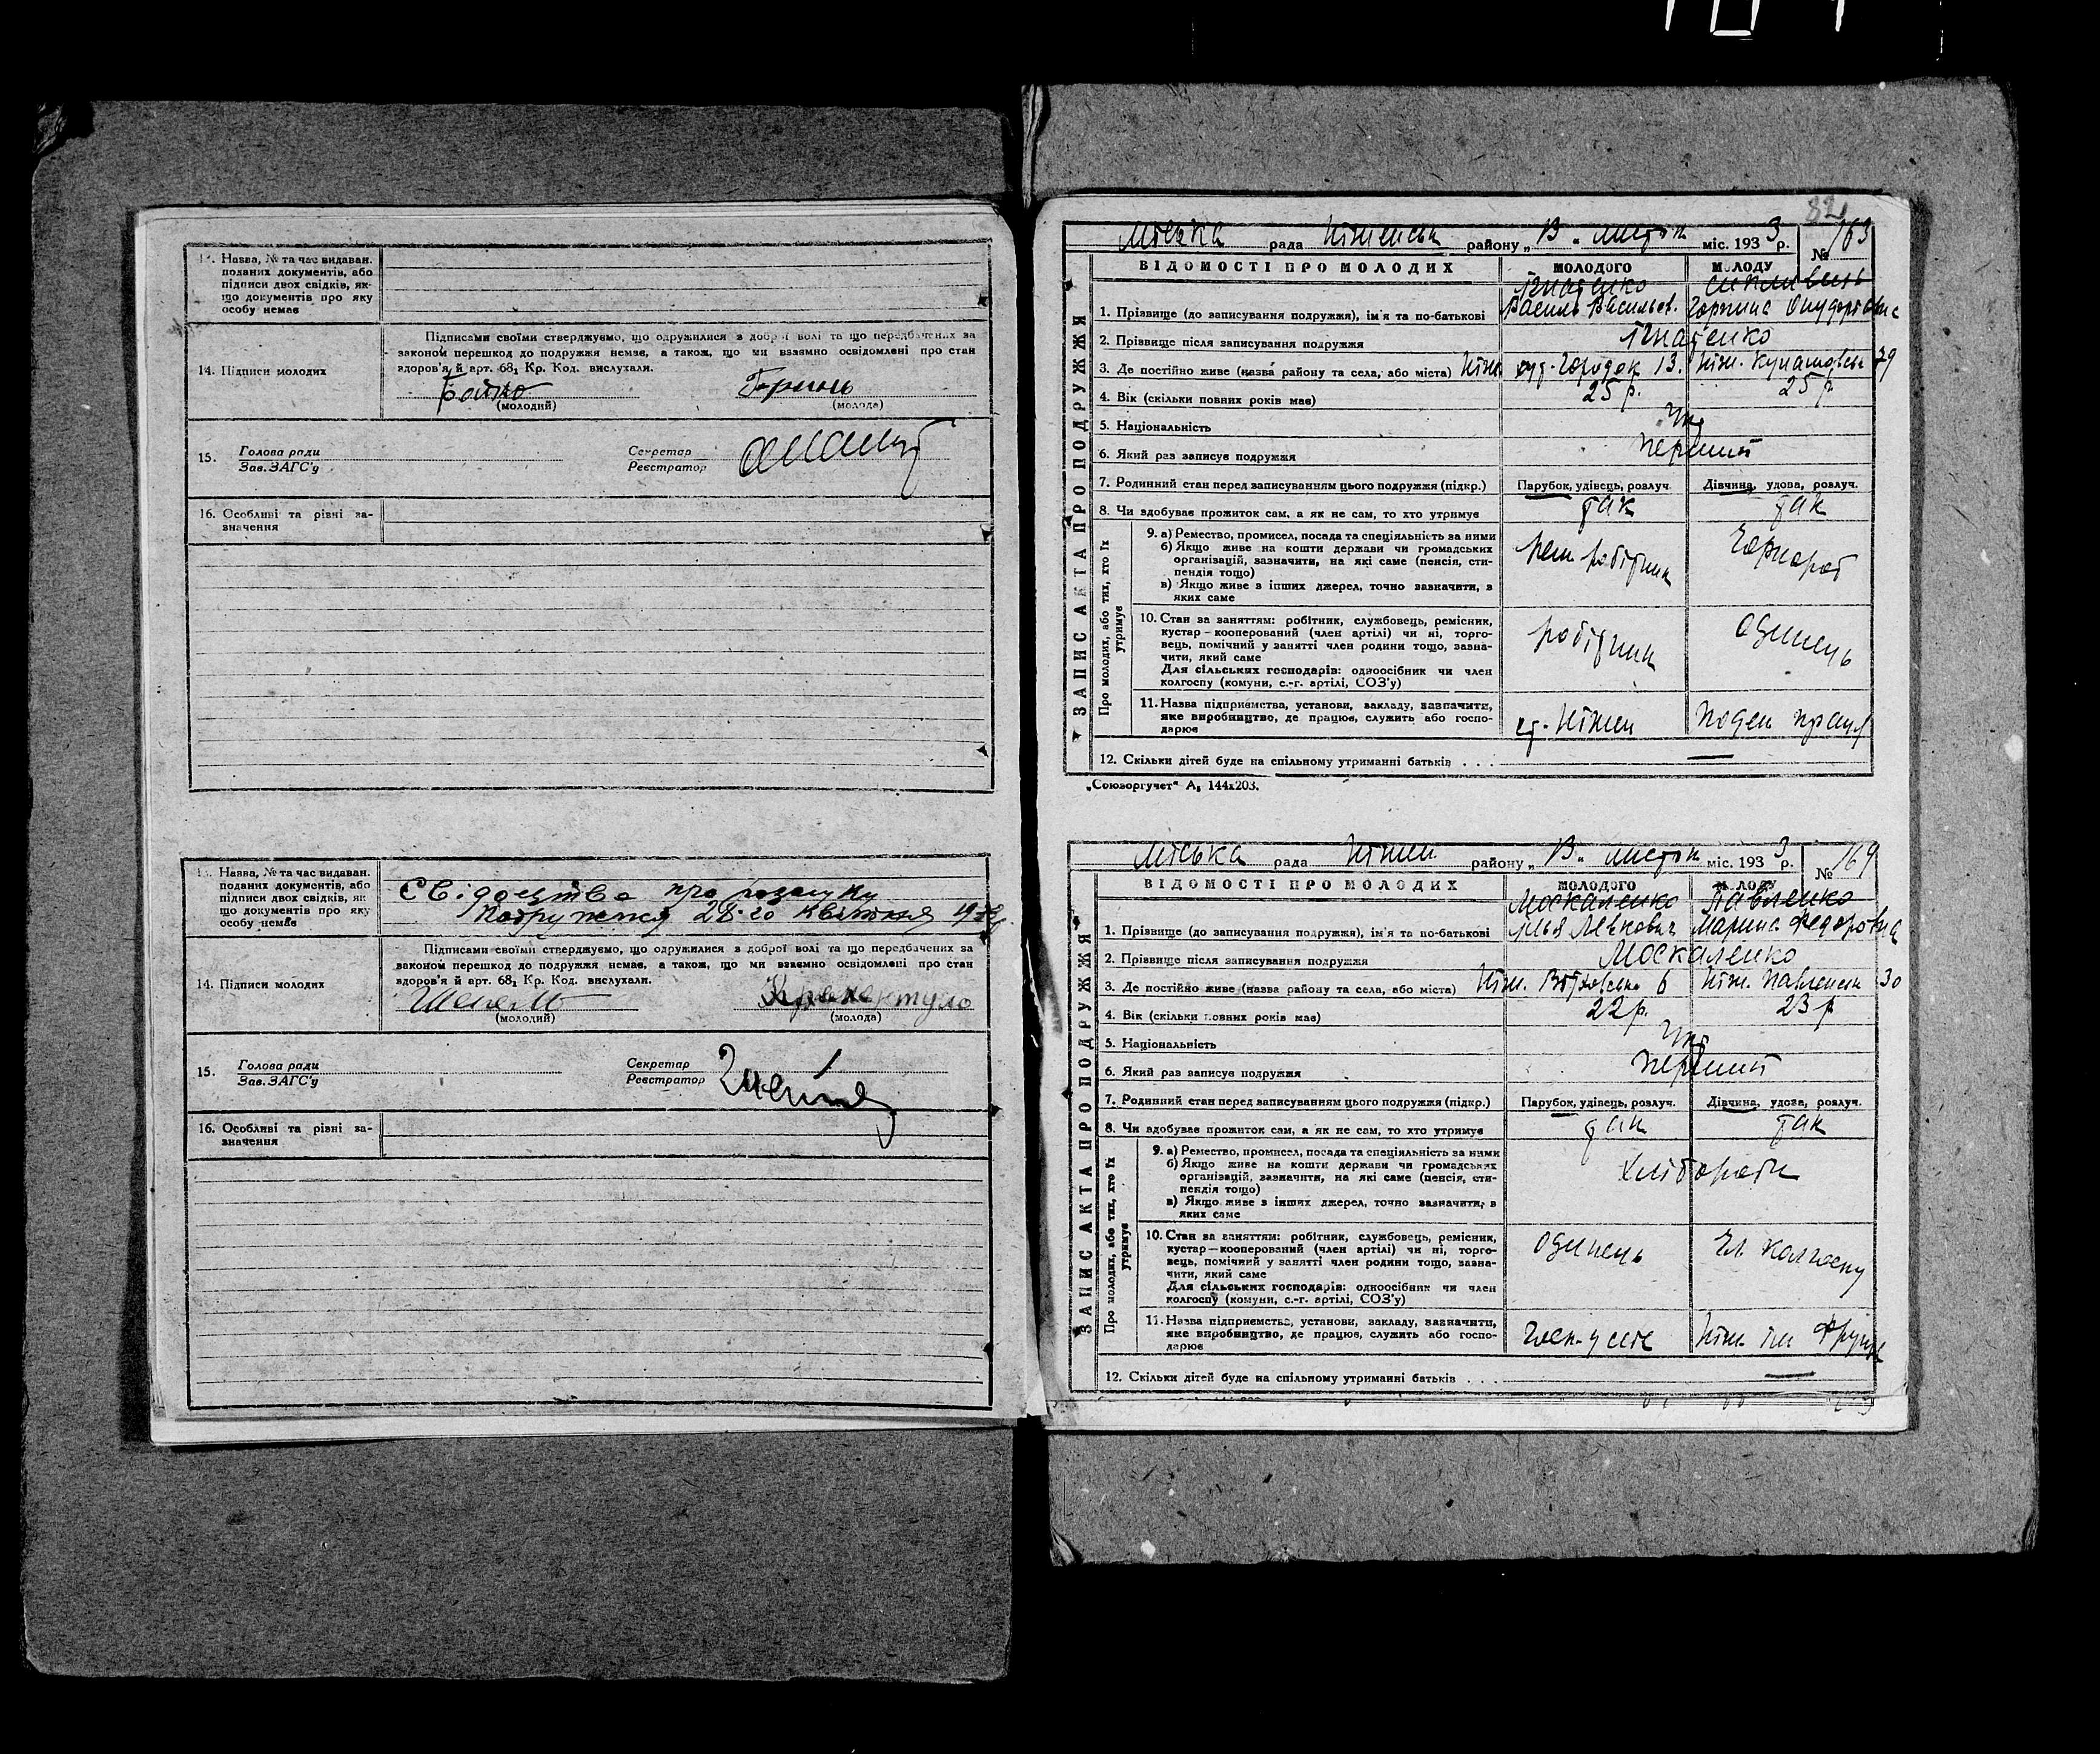 13. Назва, № та час видаван.
поданих документів, або
підписи двох свідків, як-
що документів про яку
особу немає
14. Підписи молодих
Підписами своїми стверджуємо, що одружилися з доброї волі та що передбачених за
законом перешкод до подружжя немає, а також, що ми взаємно освідомлені про стан
здоров'я й арт. 68₁ Кр. Код. вислухали.
Бойко
(молодий)
(молода)
15. Голова ради
Зав. ЗАГС'у
Секретар
Реєстратор
16. Особливі та різні за-
значення
13. Назва, № та час видаван.
поданих документів, або
підписи двох свідків, як-
що документів про яку
особу немає
Свідоцтво про розлуку
Подружжя 28-го квітня
14. Підписи молодих
Підписами своїми стверджуємо, що одружилися з доброї волі та що передбачених за
законом перешкод до подружжя немає, а також, що ми взаємно освідомлені про стан
здоров'я й арт. 68₁ Кр. Код. вислухали.
(молодий)
(молода)
15. Голова ради
Зав. ЗАГС'у
Секретар
Реєстратор
16. Особливі та різні за-
значення
82
Міська рада Ніженськ району „ В “ листоп міс. 193 3 р. № 163
ЗАПИС АКТА ПРО ПОДРУЖЖЯ
ВІДОМОСТІ ПРО МОЛОДИХ
МОЛОДОГО
МОЛОДУ
Ігнатенко
1. Прізвище (до записування подружжя), ім'я та по-батькові
Василь Васильев.
2. Прізвище після записування подружжя
Ігнатенко
3. Де постійно живе (назва району та села, або міста) Ніжн. вул. Городок 13. Ніж. Кунашовськ 79
4. Вік (скільки повних років має) 25 р. 25 р
5. Національність Укр
6. Який раз записує подружжя перший
7. Родинний стан перед записуванням цього подружжя (підкр.) Парубок, удівець, розлуч. Дівчина, удова, розлуч.
8. Чи здобуває прожиток сам, а як не сам, то хто утримує так так
Про молодих, або тих, хто їх утримує
9. а) Ремество, промисел, посада та спеціяльність за ними
б) Якщо живе на кошти держави чи громадських
організацій, зазначити, на які саме (пенсія, сти-
пендія тощо)
в) Якщо живе в інших джерел, точно зазначити, в
яких саме
рем. робітник
Чорнороб
10. Стан за заняттям: робітник, службовець, ремісник,
кустар – кооперований (член артілі) чи ні, торго-
вець, помічний у занятті член родини тощо, зазна-
чити, який саме
Для сільських господарів: одноосібник чи член
колгоспу (комуни, с.-г. артілі, СОЗ'у)
робітник
одинець
11. Назва підприємства, установи, закладу, зазначити,
яке виробництво, де працює, служить або госпо-
дарює
ст. Ніжен
Поден працує
12. Скільки дітей буде на спільному утриманні батьків . . . —
„Союзоргучет“ А₅ 144х203.
Міська рада Ніжен району „ В “ листоп міс. 193 3 р. № 169
ЗАПИС АКТА ПРО ПОДРУЖЖЯ
ВІДОМОСТІ ПРО МОЛОДИХ
МОЛОДОГО
МОЛОДУ
Москаленко Павленко
1. Прізвище (до записування подружжя), ім'я та по-батькові
Ілья Левкович Марина Федоровна
2. Прізвище після записування подружжя
Москаленко
3. Де постійно живе (назва району та села, або міста) Ніж. 6 Ніж. Павленск 30
4. Вік (скільки повних років має) 22 р. 23 р
5. Національність Укр
6. Який раз записує подружжя перший
7. Родинний стан перед записуванням цього подружжя (підкр.) Парубок, удівець, розлуч. Дівчина, удова, розлуч.
8. Чи здобуває прожиток сам, а як не сам, то хто утримує так так
Про молодих, або тих, хто їх утримує
9. а) Ремество, промисел, посада та спеціяльність за ними
б) Якщо живе на кошти держави чи громадських
організацій, зазначити, на які саме (пенсія, сти-
пендія тощо)
в) Якщо живе в інших джерел, точно зазначити, в
яких саме
хлібороби
10. Стан за заняттям: робітник, службовець, ремісник,
кустар – кооперований (член артілі) чи ні, торго-
вець, помічний у занятті член родини тощо, зазна-
чити, який саме
Для сільських господарів: одноосібник чи член
колгоспу (комуни, с.-г. артілі, СОЗ'у)
одинець
Чл. колгоспу
11. Назва підприємства, установи, закладу, зазначити,
яке виробництво, де працює, служить або госпо-
дарює
Ніж. ім Фрунзе
12. Скільки дітей буде на спільному утриманні батьків . . . —